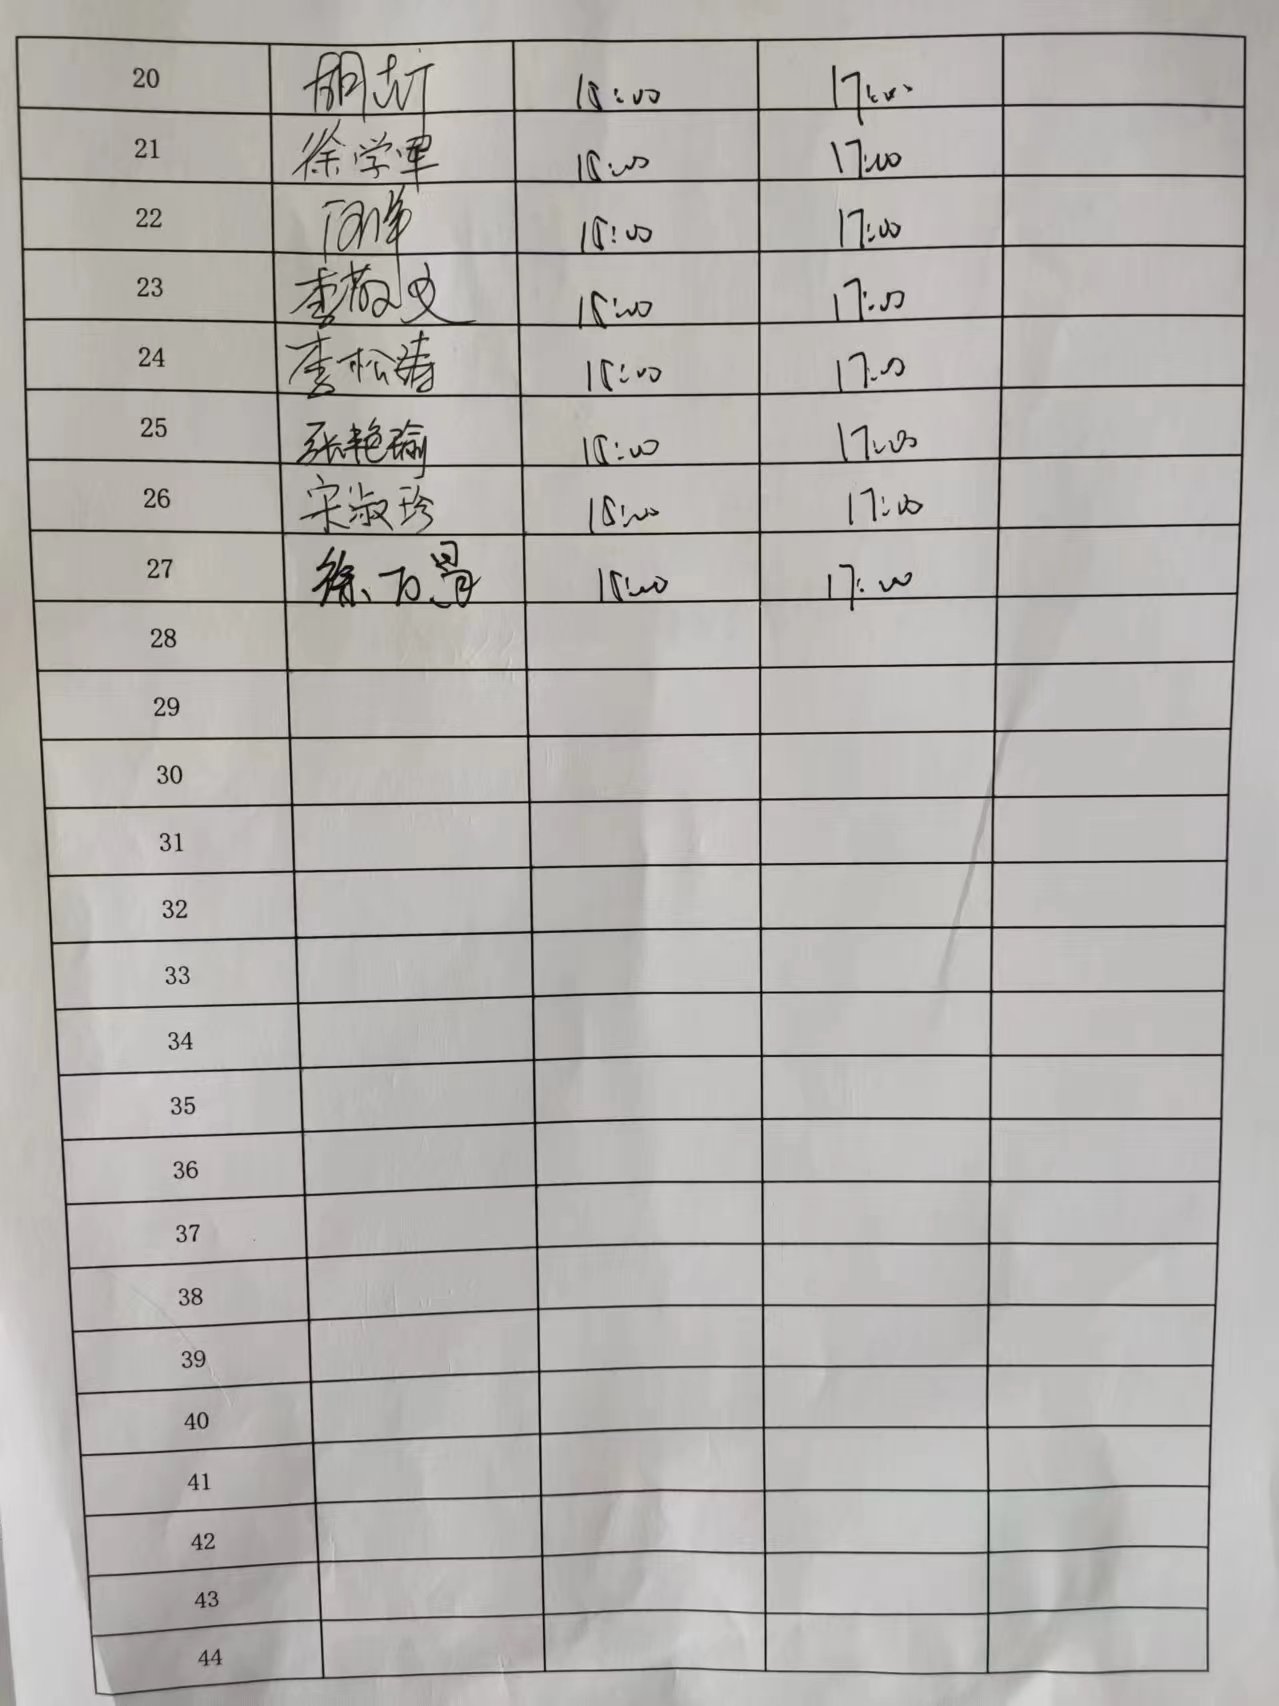 20 胡 15:00 17:00
21 徐学军 15:00 17:00
22 15:00 17:00
23 李敬文 15:00 17:00
24 李松涛 15:00 17:00
25 张艳瑜 15:00 17:00
26 宋淑珍 15:00 17:00
27 徐 15:00 17:00
28
29
30
31
32
33
34
35
36
37
38
39
40
41
42
43
44